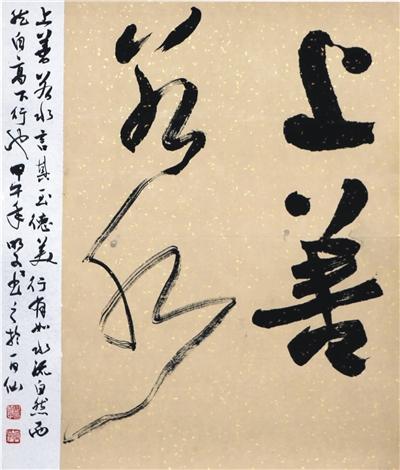 上善
若水
上善若水言其至德美行有如水流自然而
自高下行也甲午年书之於百仙